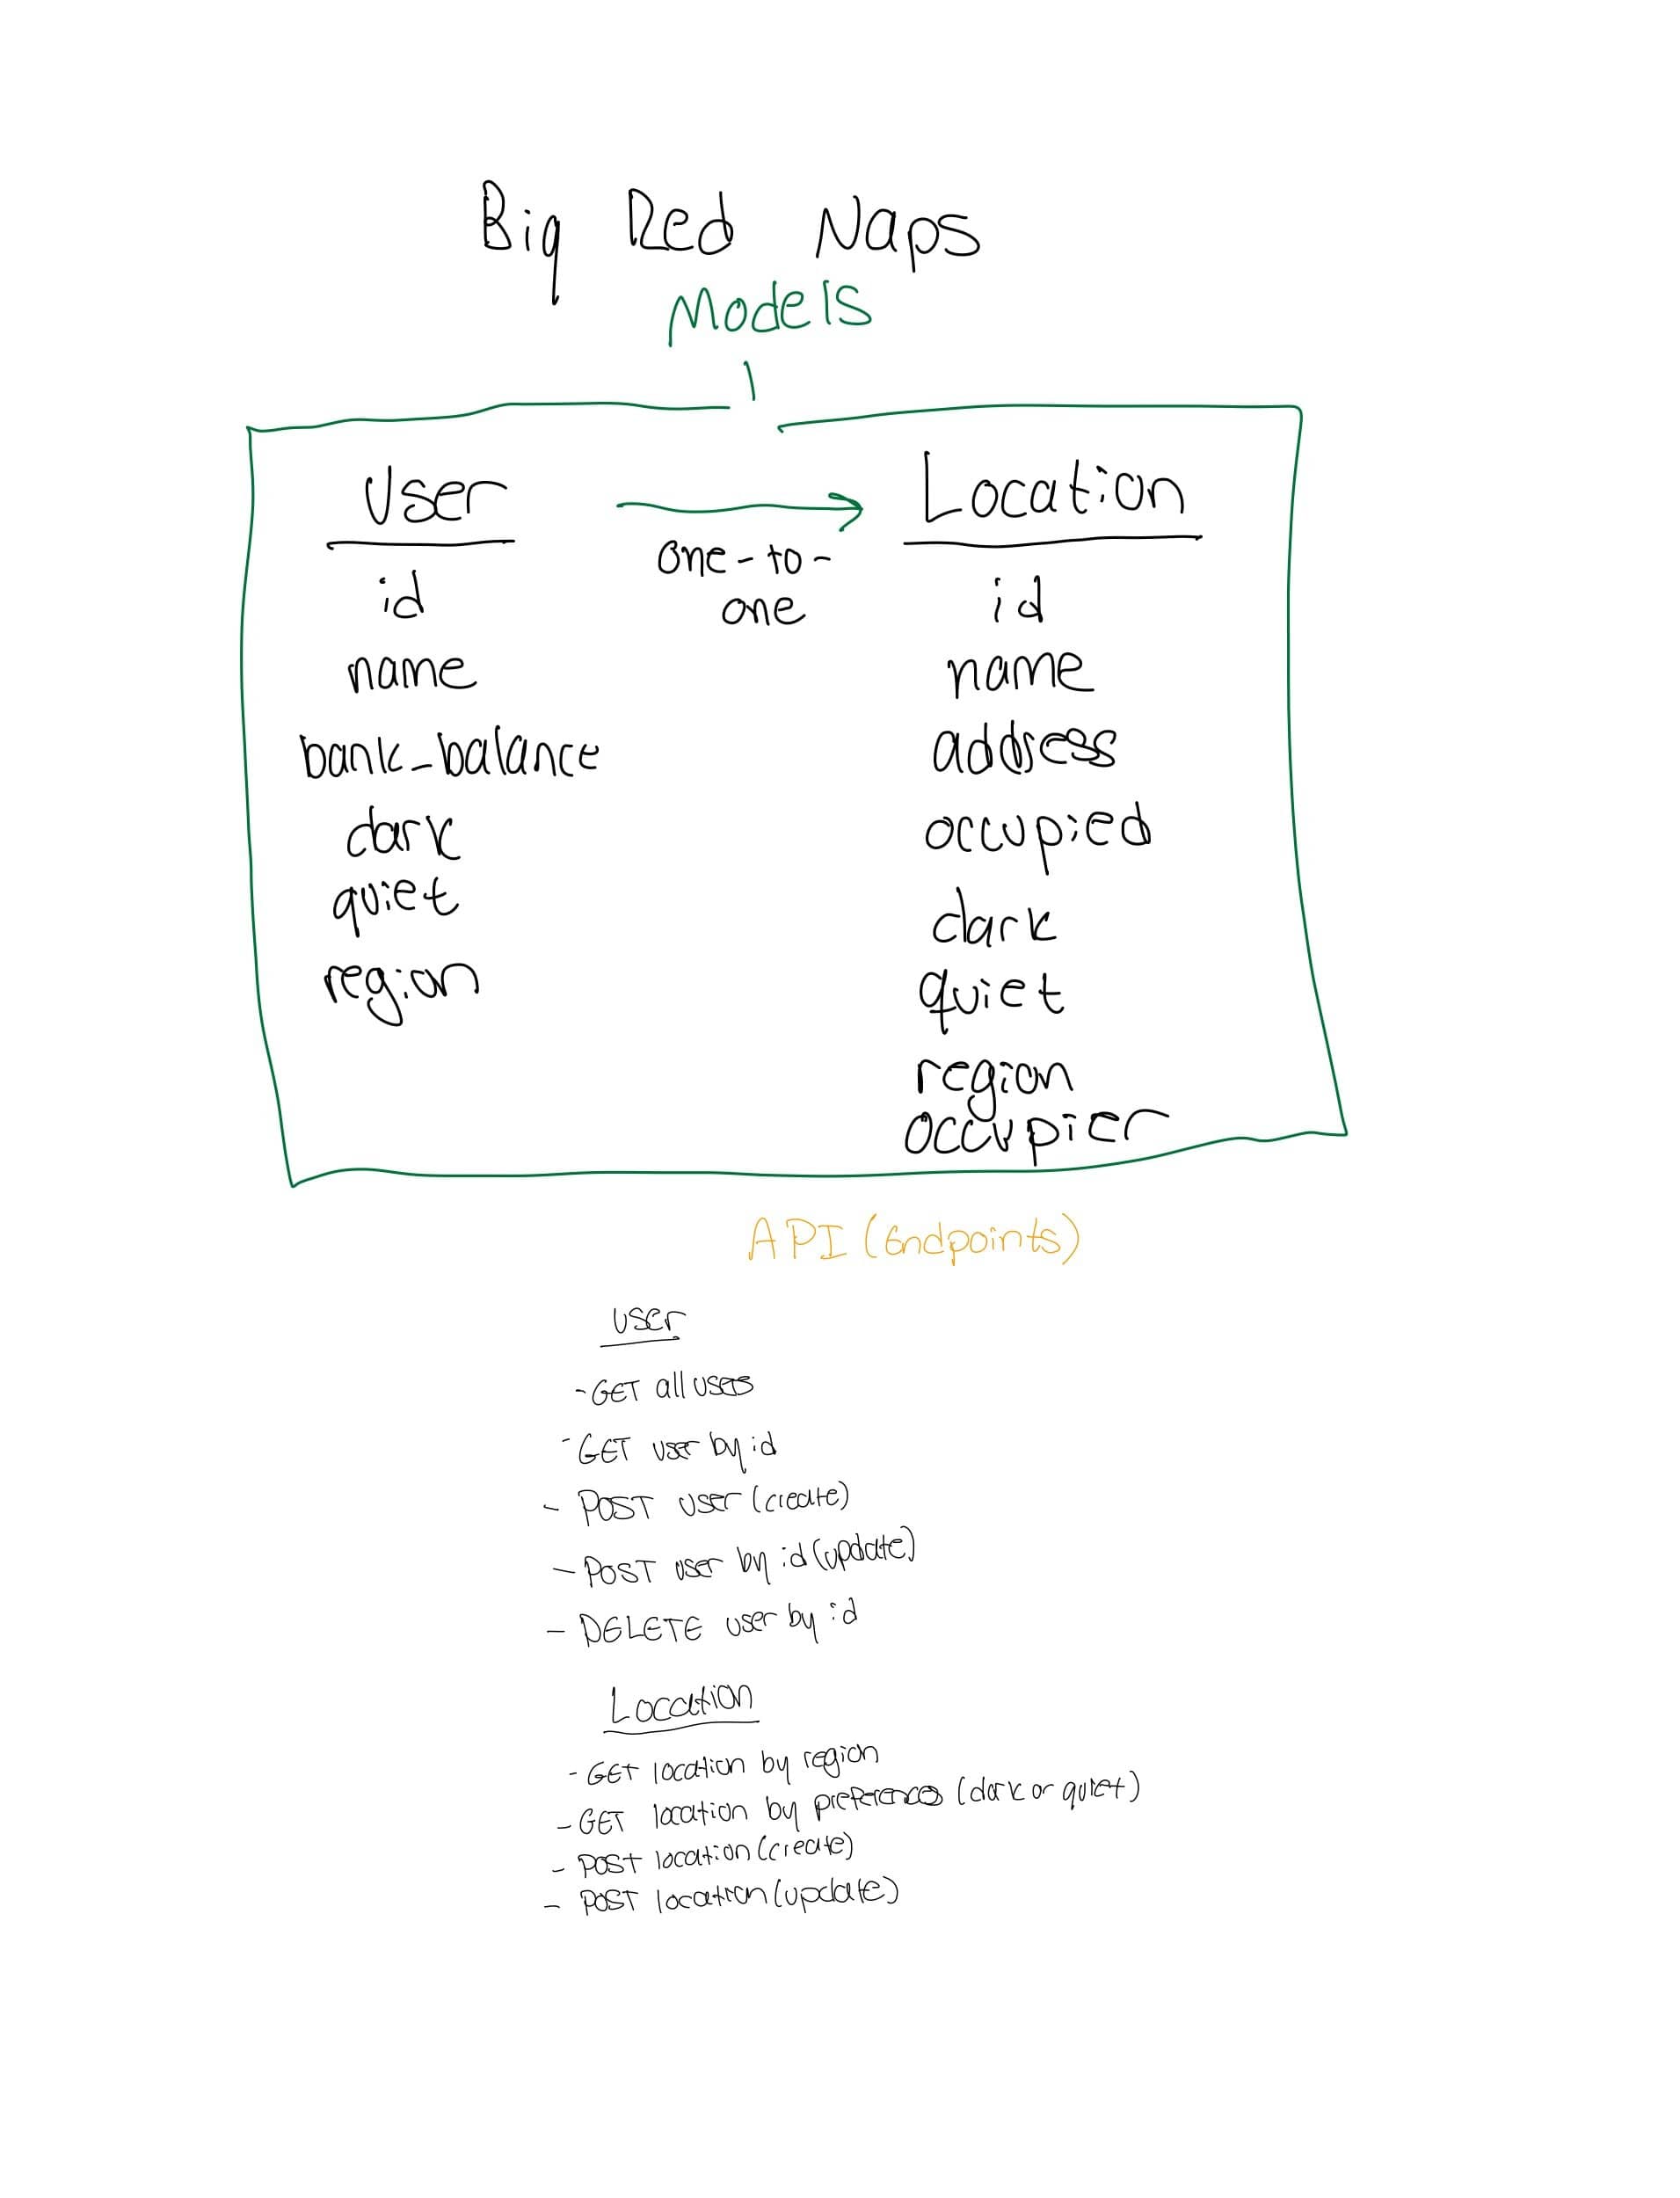 Big Red Naps
Models
User
one-to-
one
Location
id
name
bank_balance
dark
quiet
region
id
name
address
occupied
dark
quiet
region
occupier
API (Endpoints)
user
- GET all users
- GET user by id
- POST user (create)
- POST user by id (update)
- DELETE user by id
Location
- GET location by region
- GET location by preferences (dark or quiet)
- POST location (create)
- POST location (update)